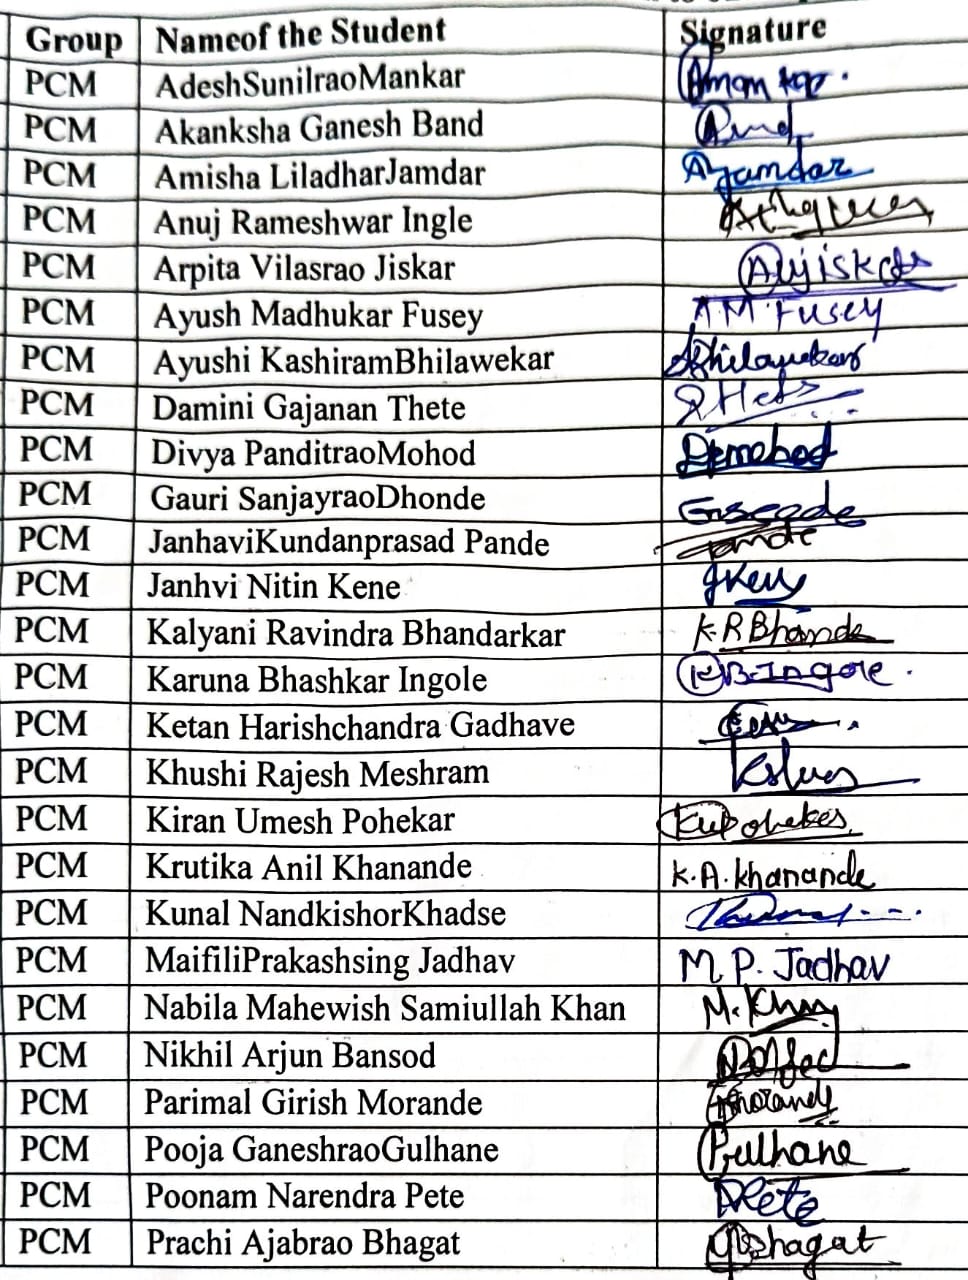 Group Nameof the Student Signature
PCM AdeshSunilraoMankar
PCM Akanksha Ganesh Band
PCM Amisha LiladharJamdar AJamdar
PCM Anuj Rameshwar Ingle
PCM Arpita Vilasrao Jiskar AVjiskar
PCM Ayush Madhukar Fusey A.M.Fusey
PCM Ayushi KashiramBhilawekar ABhilawekar
PCM Damini Gajanan Thete
PCM Divya PanditraoMohod DPmohod
PCM Gauri SanjayraoDhonde
PCM JanhaviKundanprasad Pande Pande
PCM Janhvi Nitin Kene
PCM Kalyani Ravindra Bhandarkar
PCM Karuna Bhashkar Ingole K.B.Ingole.
PCM Ketan Harishchandra Gadhave
PCM Khushi Rajesh Meshram
PCM Kiran Umesh Pohekar KUPohekar
PCM Krutika Anil Khanande K.A.khanande
PCM Kunal NandkishorKhadse
PCM MaifiliPrakashsing Jadhav M P. Jadhav
PCM Nabila Mahewish Samiullah Khan
PCM Nikhil Arjun Bansod
PCM Parimal Girish Morande
PCM Pooja GaneshraoGulhane
PCM Poonam Narendra Pete
PCM Prachi Ajabrao Bhagat